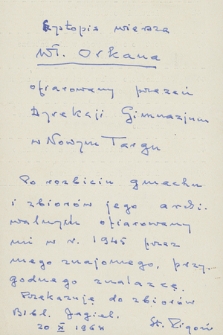 Rystopis wiersza
Wł. Orkana
ofiarowany przezeń
Dyrekcji Gimnazjum
w Nowym Targu
Po rozbiciu gmachu
i zbiorów jego archi-
walnych ofiarowany
mi w r. 1945 przez
mego znajomego, przy-
godnego znalazcę.
Przekazuję do zbiorów
Bibl. Jagiel.
20 X 1964 St. Pigoń